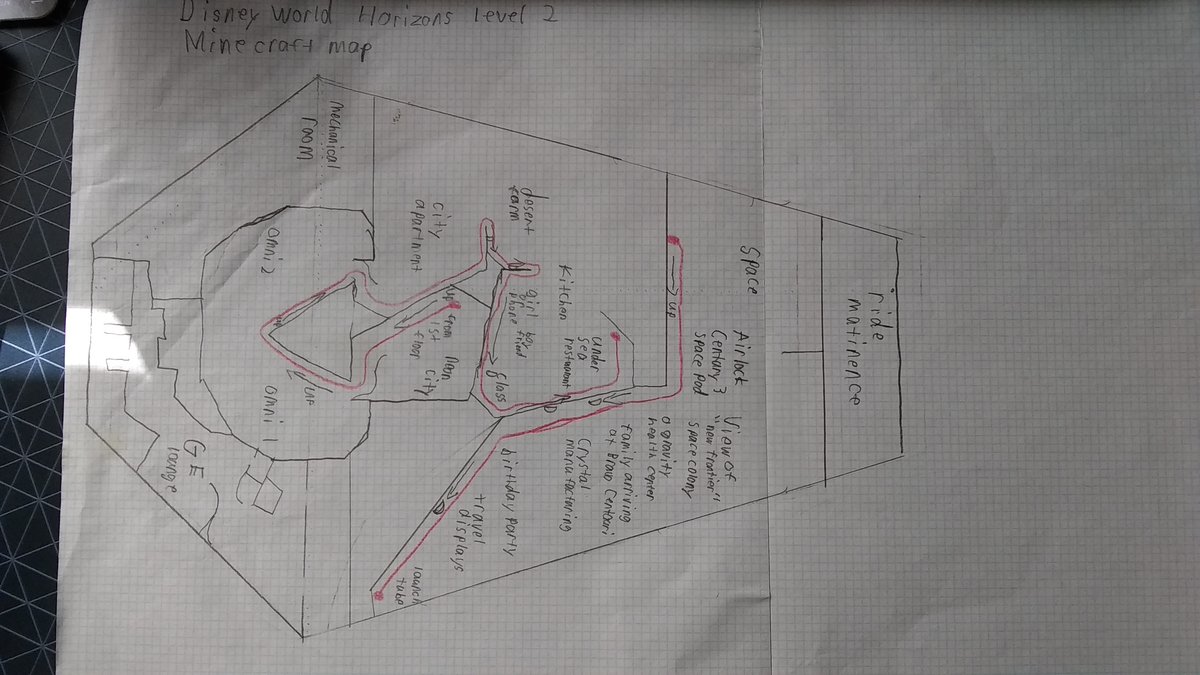 Disney World Horizons level 2
Minecraft map
ride
matinence
Space
Airlock
Century 3
Space Pod
View of
"new frontier"
Space colony
0 gravity
health center
family arriving
at Bravo Centauri
Crystal
manufacturing
birthday party
travel
displays
launch
tube
up
under
sea
restaurant
Kitchen
D
D
D
girl
phone
glass
desert
farm
city
apartment
up
from Neon city
1st
floor
mechanical
room
omni 2
omni 1
up
up
GE
lounge